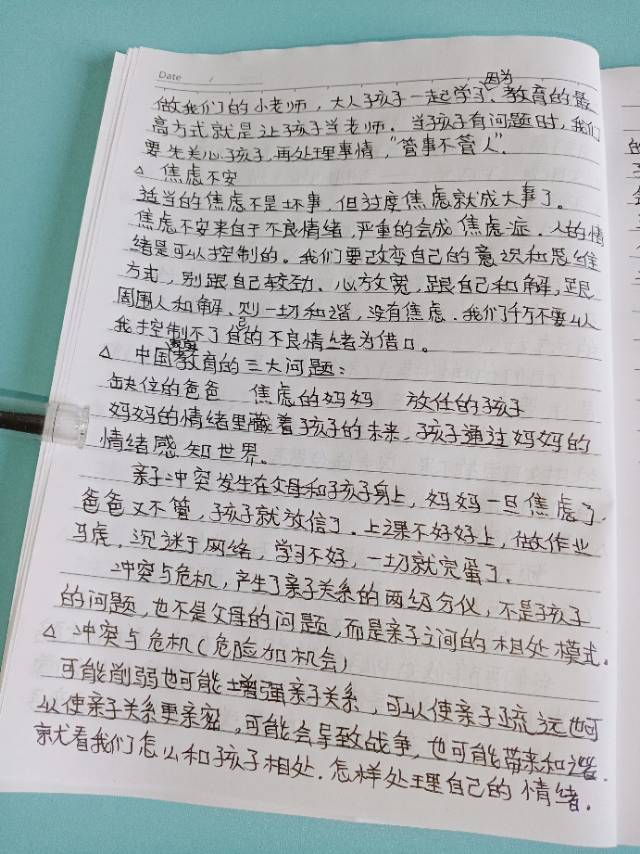 Date
做我们的小老师，大人孩子一起学习、因为教育的最
高方式就是让孩子当老师。当孩子有问题时，我们
要先关心孩子，再处理事情，“管事不管人”．
△ 焦虑不安
适当的焦虑不是坏事，但过度焦虑就成大事了。
焦虑不安来自于不良情绪，严重的会成焦虑症．人的情
绪是可以控制的。我们要改变自己的意识和思维
方式，别跟自己较劲．心放宽，跟自己和解，跟
周围人和解、则一切和谐，没有焦虑．我们千万不要以
我控制不了自己的不良情绪为借口。
△ 中国家庭教育的三大问题：
缺位的爸爸 焦虑的妈妈 放任的孩子
妈妈的情绪里藏着孩子的未来，孩子通过妈妈的
情绪感知世界。
亲子冲突发生在父母和孩子身上，妈妈一旦焦虑了，
爸爸又不管，孩子就放任了．上课不好好上，做作业
马虎．沉迷于网络，学习不好，一切就完蛋了．
冲突与危机，产生了亲子关系的两级分化，不是孩子
的问题，也不是父母的问题，而是亲子之间的相处模式．
△ 冲突与危机（危险加机会）
可能削弱也可能增强亲子关系，可以使亲子疏远也可
以使亲子关系更亲密，可能会导致战争，也可能带来和谐．
就看我们怎么和孩子相处．怎样处理自己的情绪．